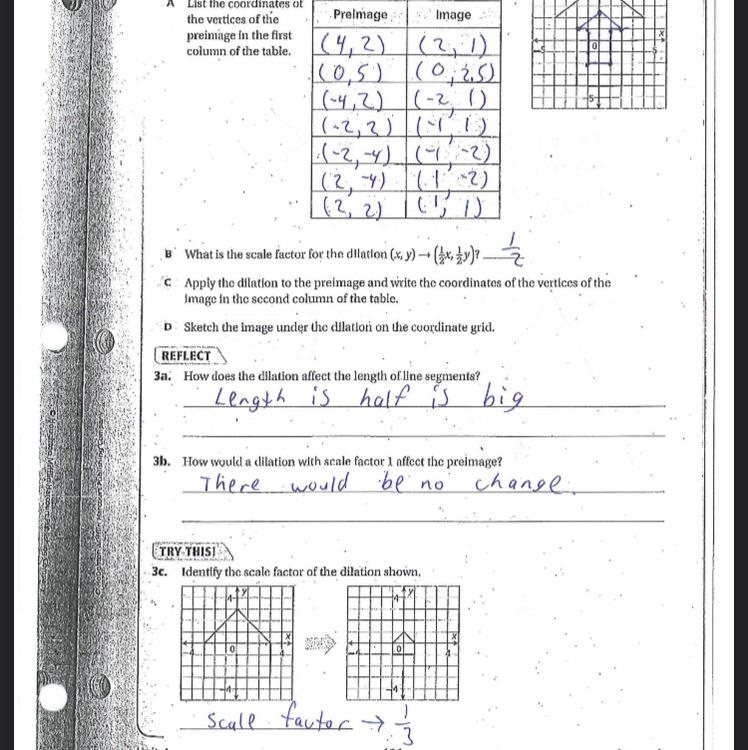 A List the coordinates of
the vertices of the
preimage in the first
column of the table.
Preimage Image
(4, 2) (2, 1)
(0, 5) (0, 2.5)
(-4, 2) (-2, 1)
(-2, 2) (-1, 1)
(-2, -4) (-1, -2)
(2, -4) (1, -2)
(2, 2) (1, 1)
x
0
-5
B What is the scale factor for the dilation (x, y) → (½x, ½y)? ½
C Apply the dilation to the preimage and write the coordinates of the vertices of the
image in the second column of the table.
D Sketch the image under the dilation on the coordinate grid.
REFLECT
3a. How does the dilation affect the length of line segments?
Length is half is big
3b. How would a dilation with scale factor 1 affect the preimage?
There would be no change.
TRY THIS!
3c. Identify the scale factor of the dilation shown.
4 y 4 y
x x
0 0
-4 -4
Scale factor → 1/3